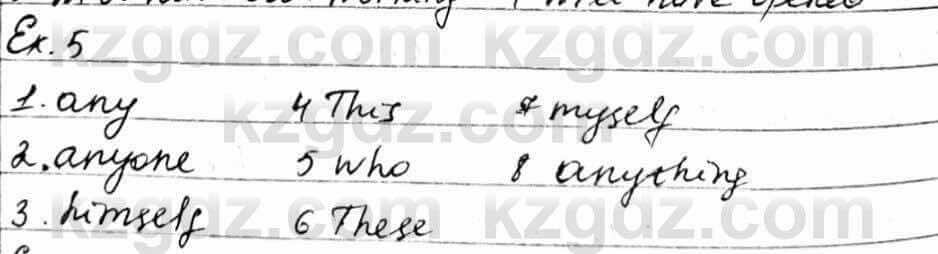 will have
Ex. 5
1. any 4 This 7 myself
2. anyone 5 who 8 anything
3. himself 6 These
kzgdz.com kzgdz.com
kzgdz.com kzgdz.com
kzgdz.com kzgdz.com